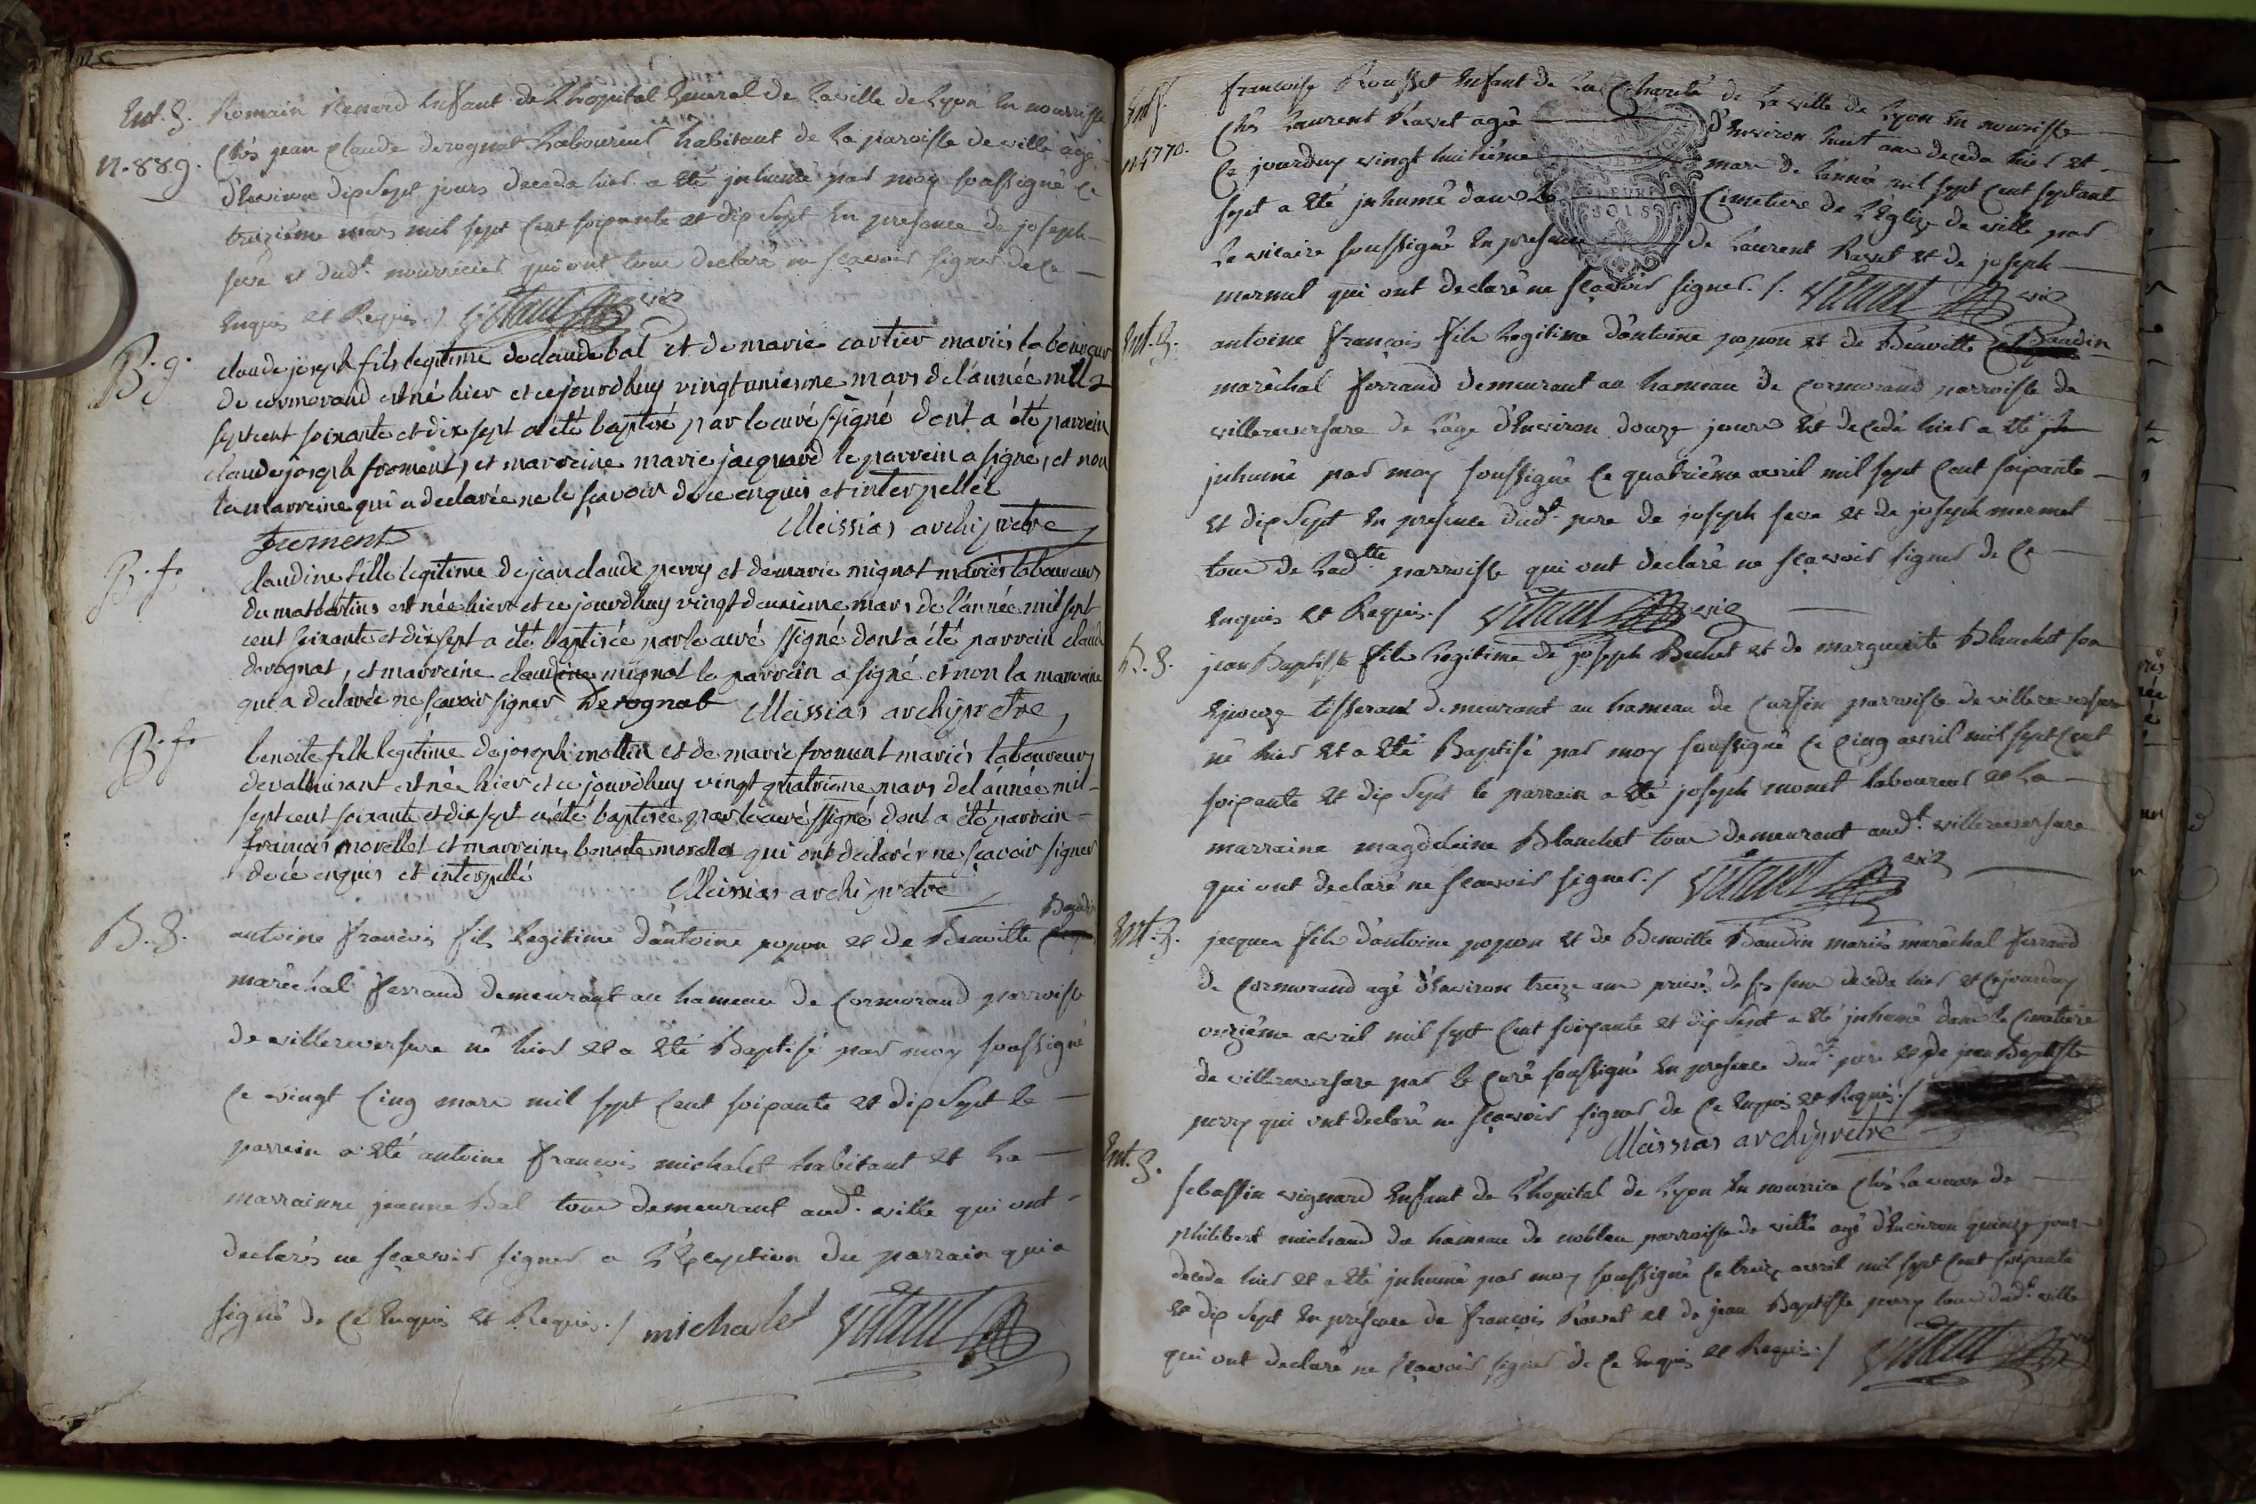 Ent. g. Romain Renard Enfant de L'hopital General de Laville de Lyon En nourrisse
N. 889. Chés jean Claude derognat Laboureur habitant de La paroisse de ville agé
d'Environ dix Sept jours deceda hier a été inhumé par moy soussigné ce
treizieme mars mil sept Cent soixante et dix Sept En presence de joseph
seve et dudt. nourricier qui ont tous declaré ne sçavoir signer de Ce
Enquis et Requis ./ vitaut vic
B. g. claude joseph fils legitime de claude bal et de marie cartier mariés laboureur
de cormorand est né hier et ce jourdhuy vingt unieme mars de l'année mil
sept cent soixante et dix sept a été baptisé par le curé ssigné dont a été parrein
claude joseph froment, et marreine marie jacquard le parrein a signé, et non
la marreine qui a declarée ne le sçavoir de ce enquis et interpellée
froment Meissias archiprêtre
B. f. claudine fille legitime de jean claude perry et de marie mignot mariés laboureurs
du matbertins est née hier et ce jourdhuy vingt deuxieme mars de l'année mil sept
cent soixante et dix sept a été baptisée par le curé ssigné dont a été parrein claude
derognat, et marreine claudine mignot le parrein a signé et non la marreine
qui a declarée ne sçavoir signer Derognat Meissias archiprêtre
B. f. benoite fille legitime de joseph mottin et de marie froment mariés laboureurs
de valhuirant est née hier et ce jourdhuy vingt quatrieme mars de l'année mil
sept cent soixante et dix sept a été baptisée par le curé ssigné dont a été parrein
françois morellet et marreine benoite morellet qui ont declarés ne sçavoir signer
de ce enquis et interpellé Meissias archiprêtre
Baudin
B. g. antoine François fils Legitime d'antoine popon et de Benoitte
maréchal Ferrand demeurant au hameau de Cormorand parroisse
de villereversure né hier et a été Baptisé par moy soussigné
Ce vingt Cinq mars mil sept Cent soixante et dix Sept le
parrein a été antoine François michalet habitant et La
marrainne jeanne Bal tous demeurant audt. ville qui ont
declarés ne sçavoir signer a L'Exception du parrain qui a
signé de Ce Enquis et Requis ./ michalet vitaut
Ent. f. francoise Rousset Enfant de La Charité de La ville de Lyon En nourisse
n. 4770. Chés Laurent Ravet agée d'Environ huit ans deceda hier et
Ce jourduy vingt huitiéme mars de L'année mil sept Cent septante
sept a été inhumé dans le Cimetiere de L'Eglize de ville par
Le vicaire soussigné En presence de Laurent Ravet et de joseph
mermet qui ont declaré ne sçavoir signer ./. vitaut vic
FLEURS BOIS
Ent. g. antoine François fils Legitime d'antoine popon et de Benoitte Baudin
maréchal ferrand demeurant au hameau de Cormorand parroisse de
villereversure de l'age d'Environ douze jours est decedé hier a été
inhumé par moy soussigné Ce quatriéme avril mil sept Cent soixante
et dix Sept En presence dudt. pere de joseph seve et de joseph mermet
tous de Ladtte parroisse qui ont declaré ne sçavoir signer de Ce
Enquis et Requis ./ vitaut vic
B. g. jean Baptiste fils Legitime de joseph Buchet et de marguerite Blanchet son
Epouze tisserand demeurant au hameau de Curfin parroisse de villereversure
né hier et a été Baptisé par moy soussigné Ce Cinq avril mil sept Cent
soixante et dix Sept le parrain a été joseph monet laboureur et La
marraine magdeleine Blanchet tous demeurant audt. villereversure
qui ont declaré ne sçavoir signer ./ vitaut vic
Ent. g. jacques fils d'antoine popon et de Benoitte Baudin mariés maréchal Ferrand
de Cormorand agé d'Environ treize ans privés de ses sens deceda hier et Cejourduy
onziéme avril mil sept Cent soixante et dix Sept a été inhumé dans le Cimetiere
de villereversure par le Curé soussigné En presence dudt. pere et de jean Baptiste
perry qui ont declaré ne sçavoir signer de Ce Enquis et Requis ./
Meissias archiprêtre
Ent. g. sebastien vignard Enfant de L'hopital de Lyon En nourrice Chés La veuve de
philibert michaud du hameau de noblen parroisse de ville agé d'Environ quinze jours
deceda hier et a été inhumé par moy soussigné Ce treize avril mil sept Cent soixante
et dix Sept En presence de François Ravet et de jean Baptiste perry tous dudt. ville
qui ont declaré ne sçavoir signer de Ce Enquis et Requis ./ vitaut vic